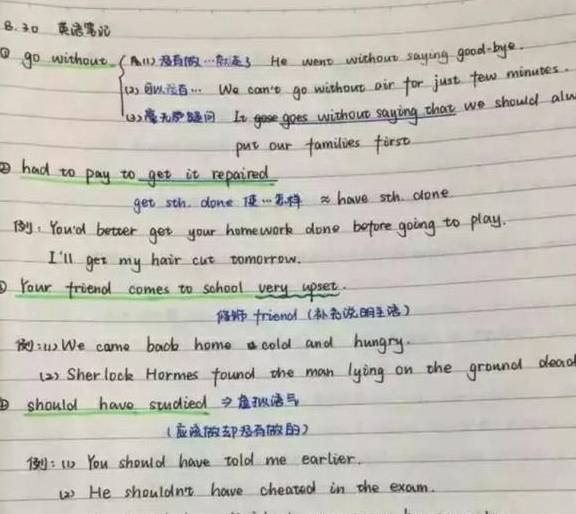 8.30 英语笔记
① go without (1) 没有做…就走了 He went without saying good-bye.
(2) 可以没有… We can't go without air for just few minutes.
(3) 毫无疑问 It goes without saying that we should alw
put our families first
② had to pay to get it repaired
get sth. done 使…怎样 ≈ have sth. done
例: You'd better get your homework done before going to play.
I'll get my hair cut tomorrow.
Your friend comes to school very upset.
修饰 friend (补充说明主语)
例:(1) We came back home cold and hungry.
(2) Sherlock Hormes found the man lying on the ground dead
should have studied ⇒ 虚拟语气
(应该做却没有做的)
例: (1) You should have told me earlier.
(2) He shouldn't have cheated in the exam.